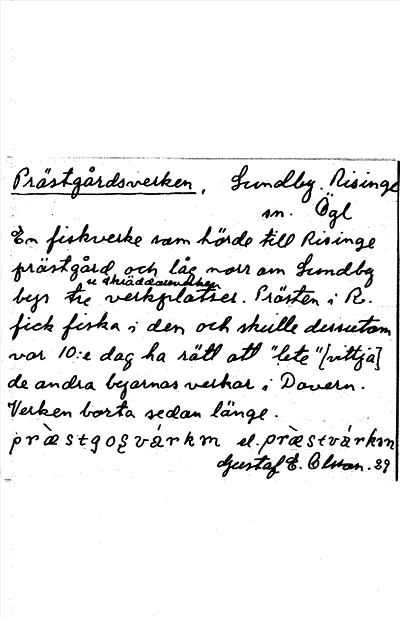 Prästgårdsverken, Sundby. Risinge
sn. Ögl
En fiskverke som hörde till Risinge
prästgård och låg norr om Sundby
bys tre verkplatser. Prästen i R.
fick fiska i den och skulle dessutom
var 10:e dag ha rätt att "lete" [vittja]
de andra byarnas verkar i Dovern.
Verken borta sedan länge.
præ̀stgoșvárkm el. præ̀stvárkm
Gustaf E. Olsson. 29